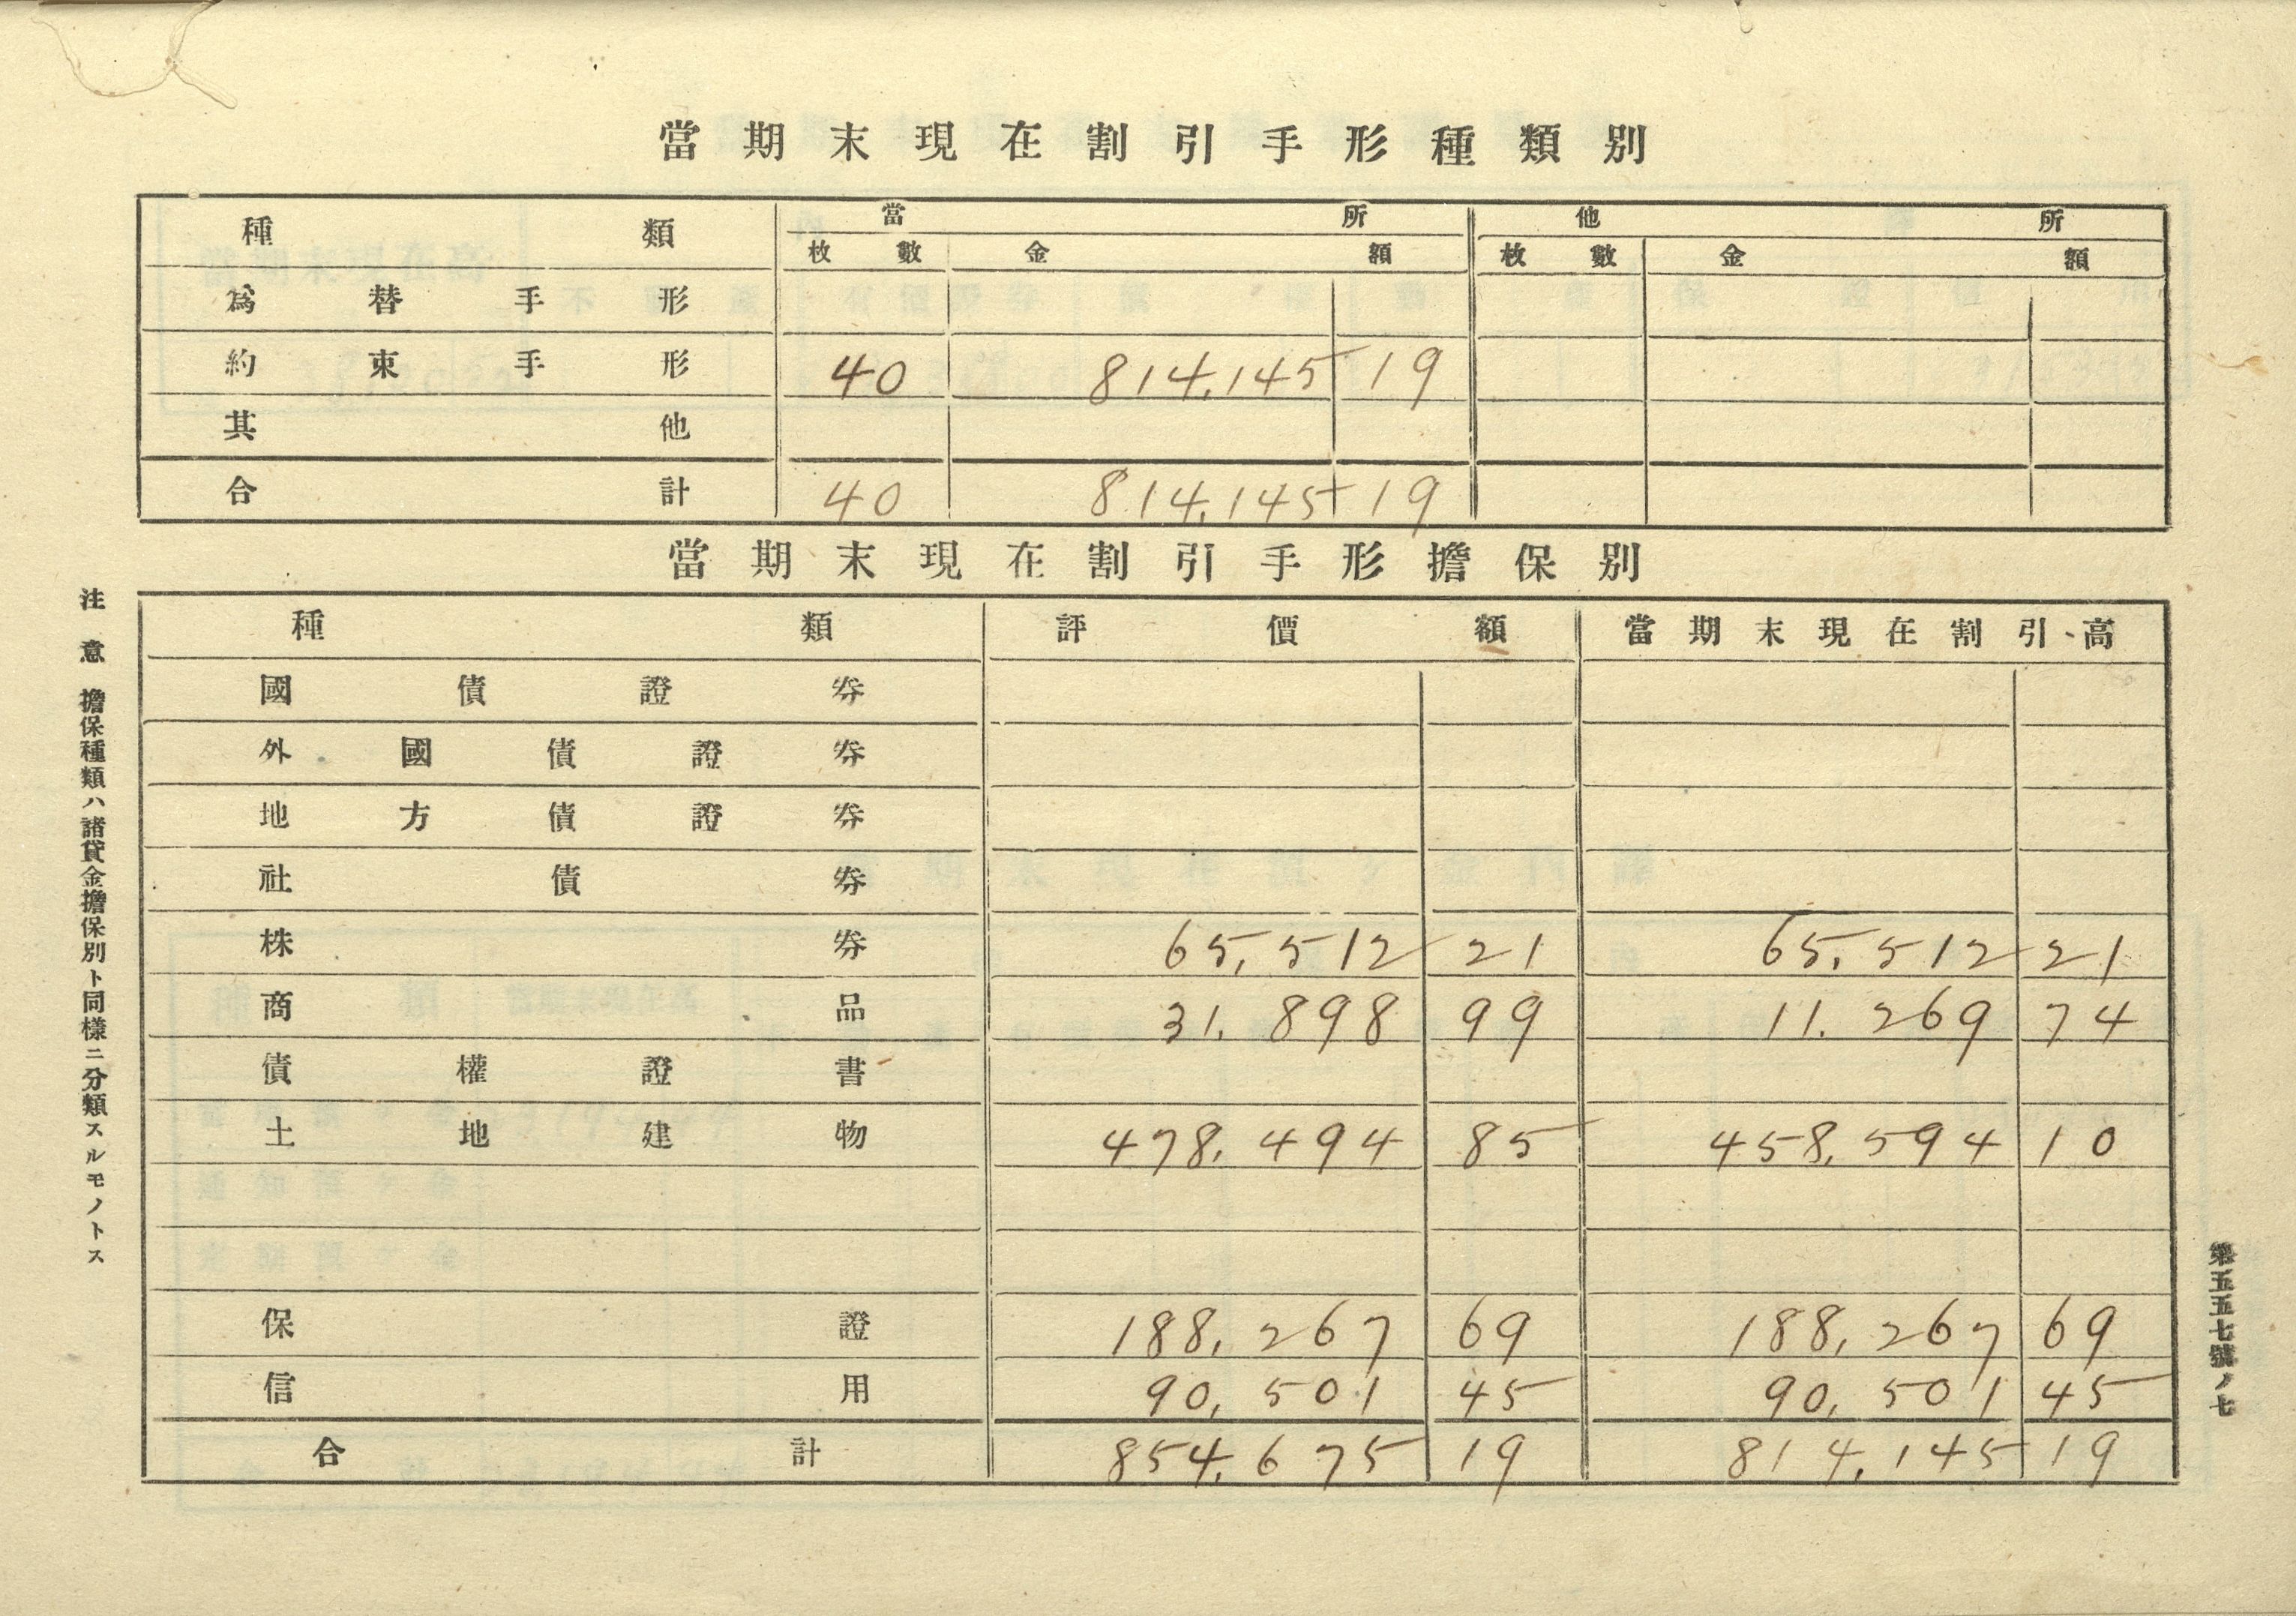 當期末現在割引手形種類別
種類 當所 他所
枚數 金額 枚數 金額
爲替手形
約束手形 40 814,145 19
其他
合計 40 814,145 19
當期末現在割引手形擔保別
種類 評價額 當期末現在割引高
國債證券
外國債證券
地方債證券
社債券
株券 65,512 21 65,512 21
商品 31,898 99 11,269 74
債權證書
土地建物 478,494 85 458,594 10
保證 188,267 69 188,267 69
信用 90,501 45 90,501 45
合計 854,675 19 814,145 19
注意 擔保種類ハ諸貸金擔保別ト同樣ニ分類スルモノトス
第五五七號ノ七